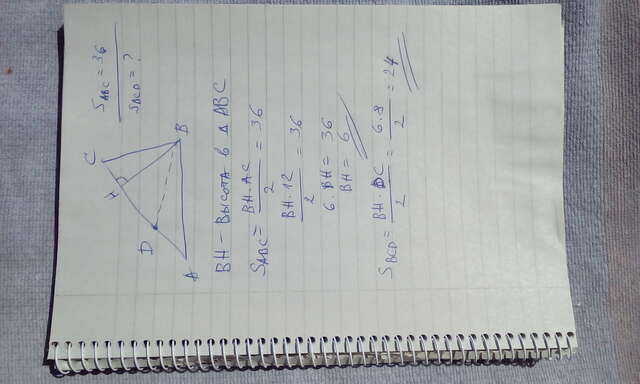 S ABC = 36
S BCD = ?
C
H
D
A
B
BH - Высота в Δ ABC
S ABC = BH · AC / 2 = 36
BH · 12 / 2 = 36
6 · BH = 36
BH = 6
S BCD = BH · DC / 2 = 6 · 8 / 2 = 24